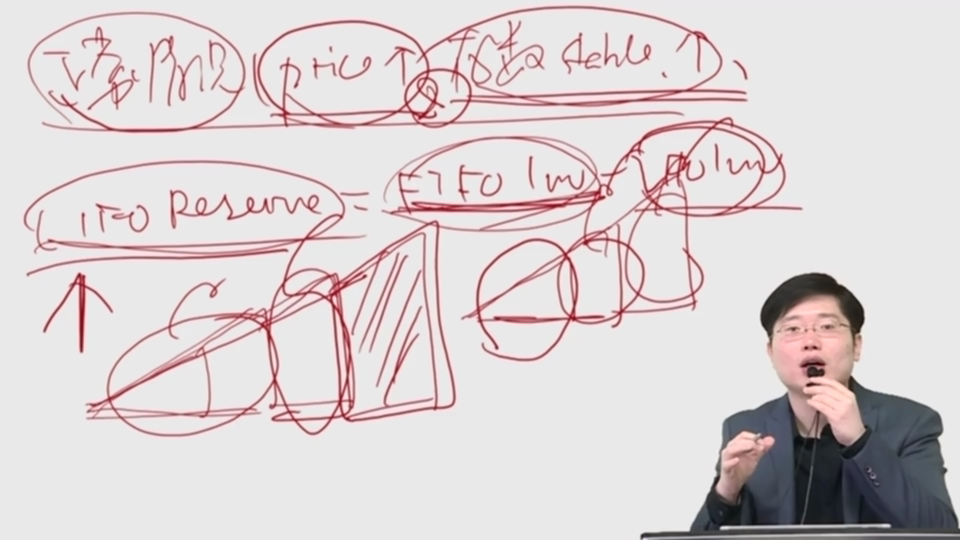 正常阶段 price ↑ & 存货 stable. ↑、
LIFO Reserve = FIFO Inv - LIFO Inv
↑